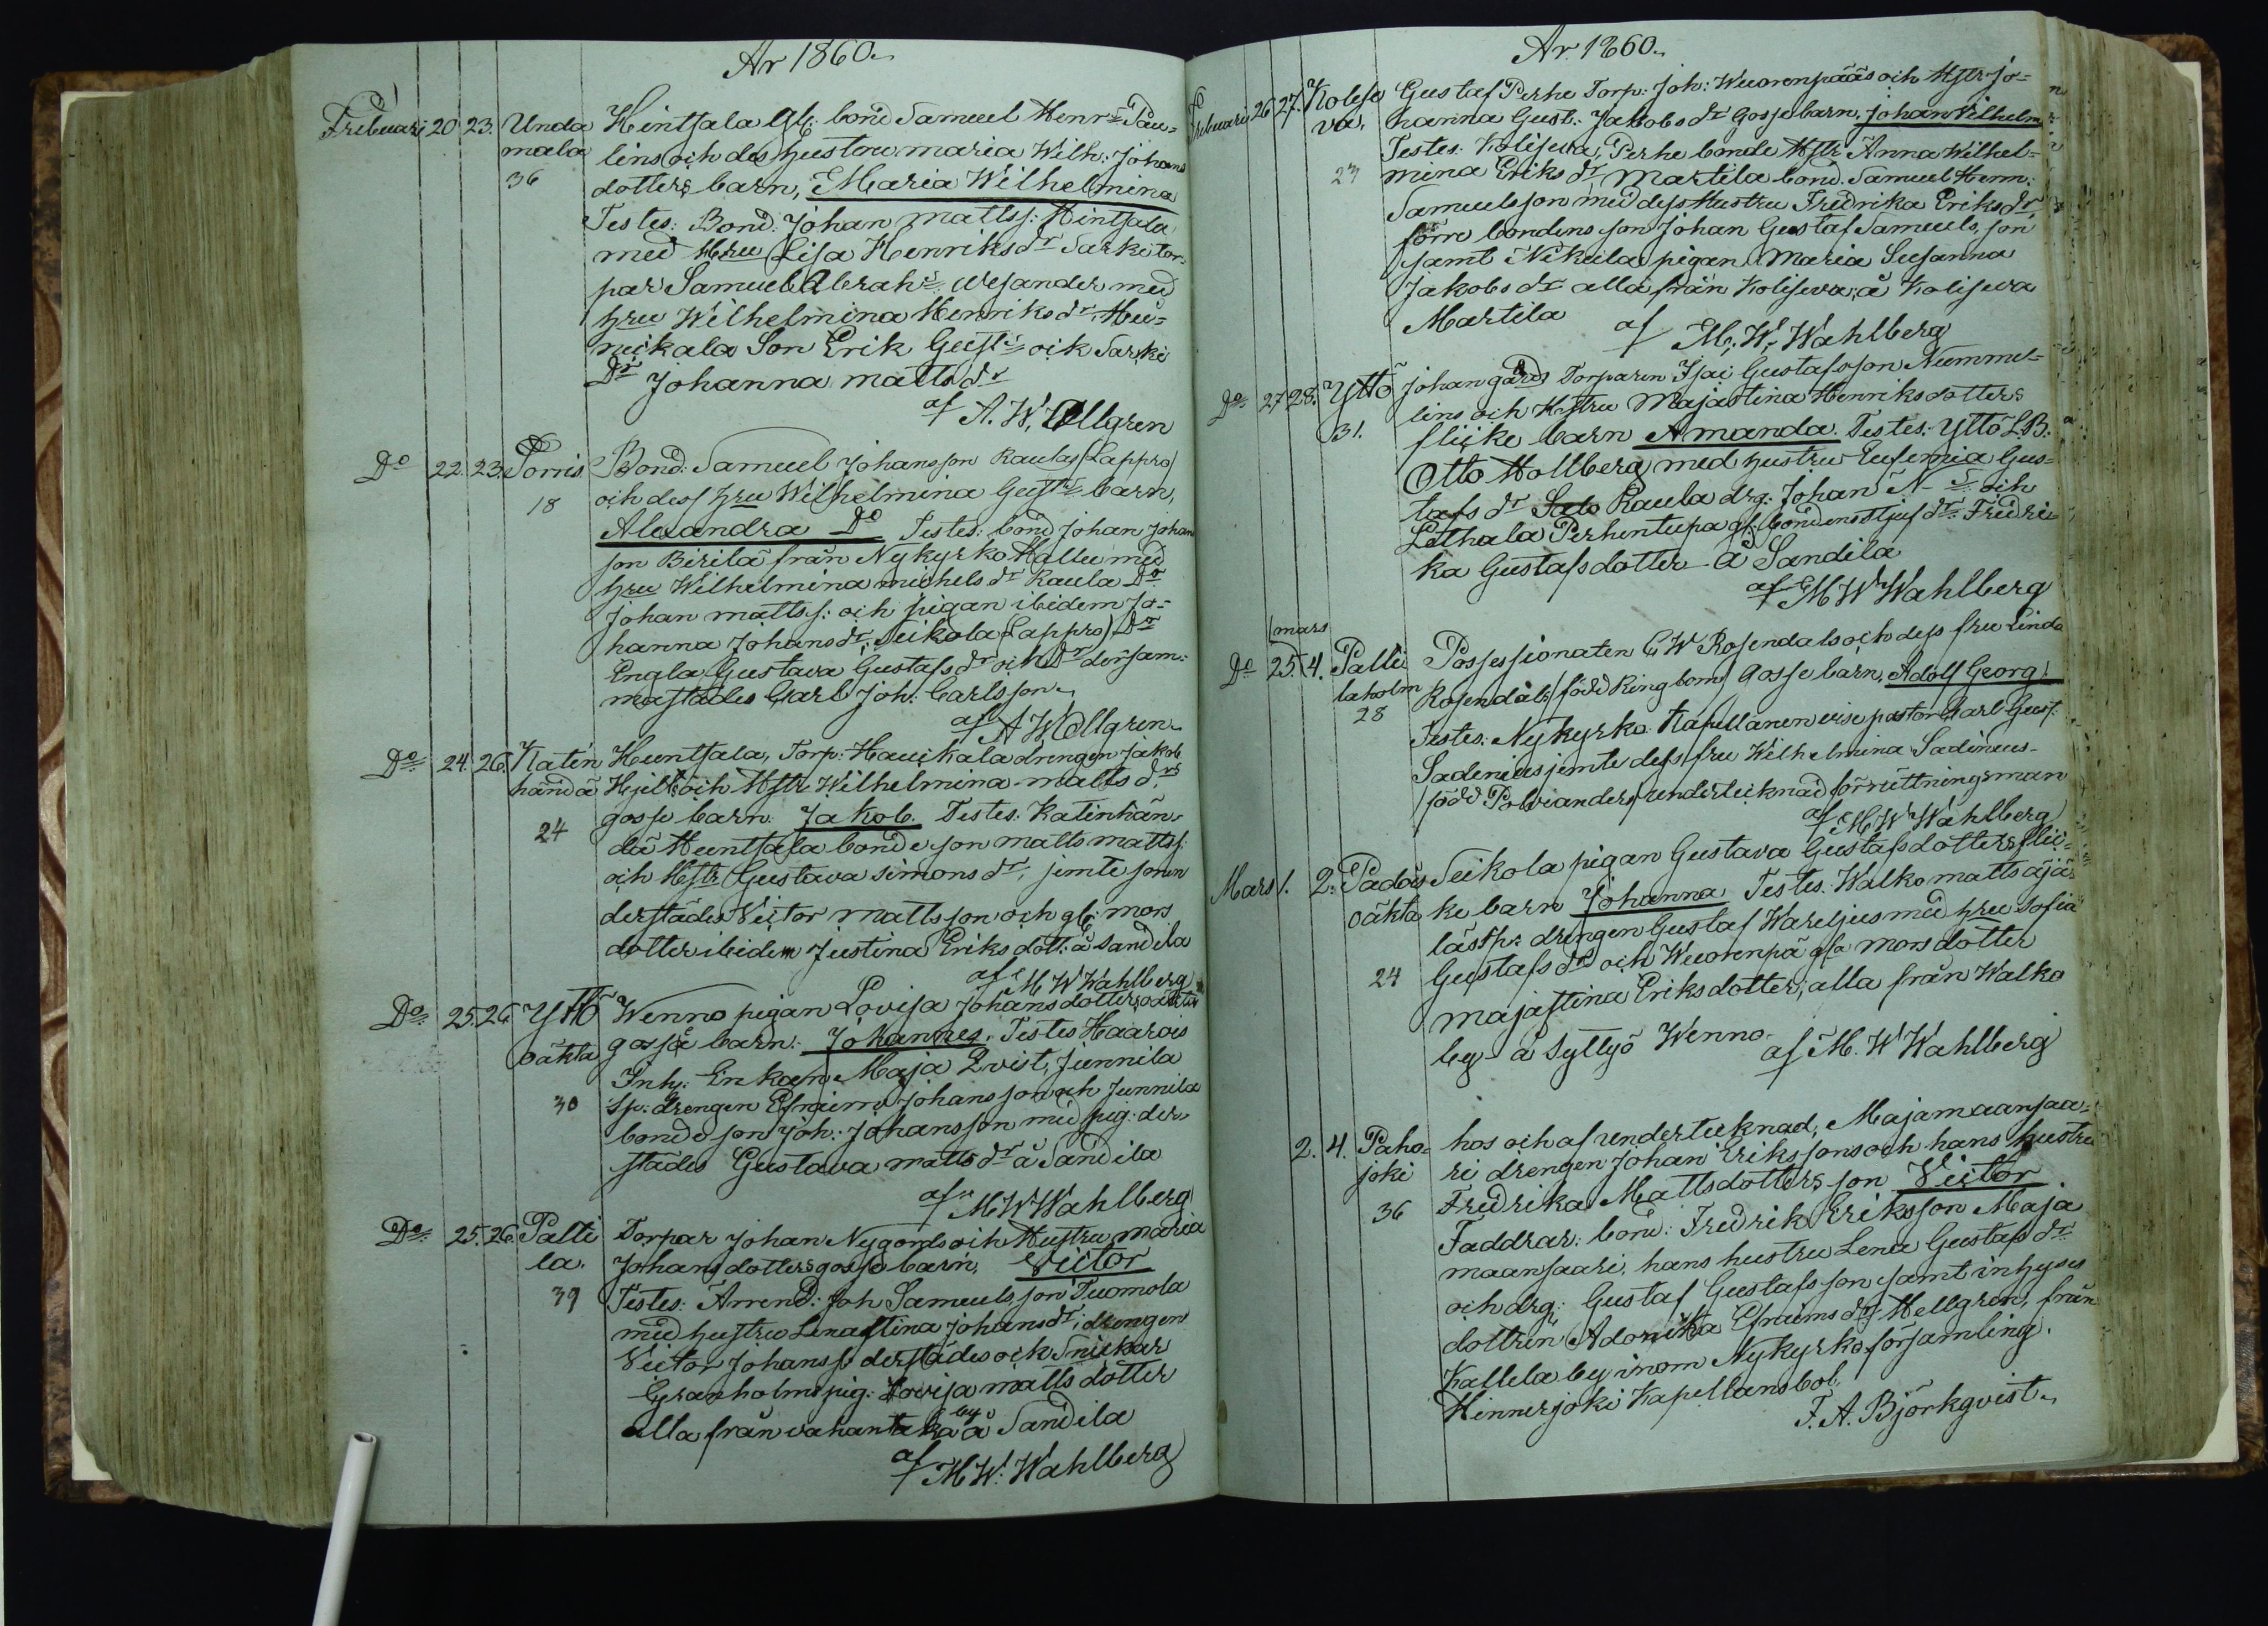 År 1860.
Frebuari 20. 23. Unda Hintsala Gl: bond Samuel Henr:s Pau-
mala lins och des hustru maria Wilh: Johans
36 dotters barn, Maria Wilhelmina
Testes: Bond: Johan matts: Hintsala
med Hru Lisa Henriks dr Sarki tor-
par Samuel Abrah:s Wesander med
hru Wilhelmina Henriks dr. Hu-
nikala Son Erik Gust:s och Sarki
Dr Johanna matts dr
af A. W. Ollgren
Do 22. 23. Sorris Bond: Samuel Johansson Raulas (Lappro)
18 och dess hru Wilhelmina Gust:s barn,
Alexandra Do Testes: bond Johan Johan
son Birilä från Nykyrko Kallu med
hru Wilhelmina michels dr Raula Dr
Johan mattss: och pigan ibidem Jo-
hanna Johans dr, Seikola (Lappro) Dr
Engla Gustava Gustafs dr och Dr dersam-
mastädes Carl Joh: Carlsson.
af A W Ollgren
Do 24. 26. Katin Huntsala, Torp: Hauikala drengen Jakob
händä Hjelt och Hstr Wilhelmina matts drs
24 gosse barn: Jakob. Testes. Katinhän-
dä Huntsala bonde son matts mattss:
och Hstr Gustava simons dr, jemte sonen
derstädes Victor mattsson och gl: mors
dotter ibidem Justina Eriks dott: å Sandila
af M W Wahlberg
Do. 25. 26. Yttö Wenno pigan Lovisa Johansdotters oäkta
oäkta gosse barn: Johannes. Testes Haarois
Inh: Enkan Maja Qvist, Junnila
30 Sp: drengen Efraim Johansson och Junnila
bonde son Joh: Johansson med pig: der-
städes Gustava matts dr å Sandila
af M W Wahlberg
Do. 25. 26. Palti Torpar Johan Nygords och Hustru maria
la. Johans dotters gosse barn, Victor
39 Testes: Arrend: Joh Samuels son Tuomola
med hustru Lenastina Johans dr; drengen
Victor Johanss: derstädes och Snickar
Granholms pig: Lovisa matts dotter
alla från vahantaka by å Sandila
af M W: Wahlberg
År 1860.
Frebuari 26 27. Kolise Gustaf Perhe Torp: Joh: Wuorenpääs och Hstr Jo-
va, hanna Gust: Jakobs dr Gossebarn, Johan Vilhelm
23 Testes: Koliseva, Perhe bonde Hstr Anna Wilhel-
mina Eriks dr, Martila bond. Samuel Henr:
Samuelsson med dess Hustru Fredrika Eriks dr,
förre bondens son Johan Gustaf Samuels, son
samt Nikula pigan Maria Susanna
Jakobs dr alla från Koliseva, å Koliseva
Martila
af M. W. Wahlberg
Do 27 28. Yttö Johan gårds Torparen Isai Gustafsson Nummel-
31. lins och Hstru Majastina Henriksdotters
flicke barn Amanda. Testes: Yttö L.B.
Otto Hollberg med hustru Eufemia Gus-
tafs dr Raula drg: Johan N-s och
Lethala Perhentupa gl: bondens stjuf dr: Fredri-
ka Gustafsdotter å Sandila
af M W Wahlberg
(mars
Do 25. 4. Palti Possessionaten C W Rosendals och dess fru Linda
laholm Rosendals (född Ringbom) gosse barn, Adolf Georg.
28 Testes: Nykyrko Kapellanen vise pastor Carl Gust.
Sadenius jemte dess fru Wilhelmina Sadinius
(född Polviander) undertecknad förrättningsman
af M W Wahlberg
Mars 1. 2. Padois Seikola pigan Gustava Gustafsdotters flic-
oäkta ke barn Johanna Testes. Walko matts äjä-
läs sp: drengen Gustaf Wareljus med hru Sofia
24 Gustafs dr och Wuorenpä gla mors dotter
majastina Eriksdotter, alla från Walko
by å Syllyö Wenno
af M. W Wahlberg
2. 4. Paho- hos och af undertecknad, Majamaansaa-
joki ri drengen Johan Erikssons och hans hustru
36 Fredrika Mattsdotters son Victor
Faddrar: bond: Fredrik Eriksson Maja
maansaari, hans hustru Lena Gustafs dr
och drg: Gustaf Gustafsson samt inhyses
dottren Adonika Efraims dr Hellgren, från
Kallela by inom Nykyrko församling.
Hinnerjoki Kapellansbol.
F. A. Björkqvist.